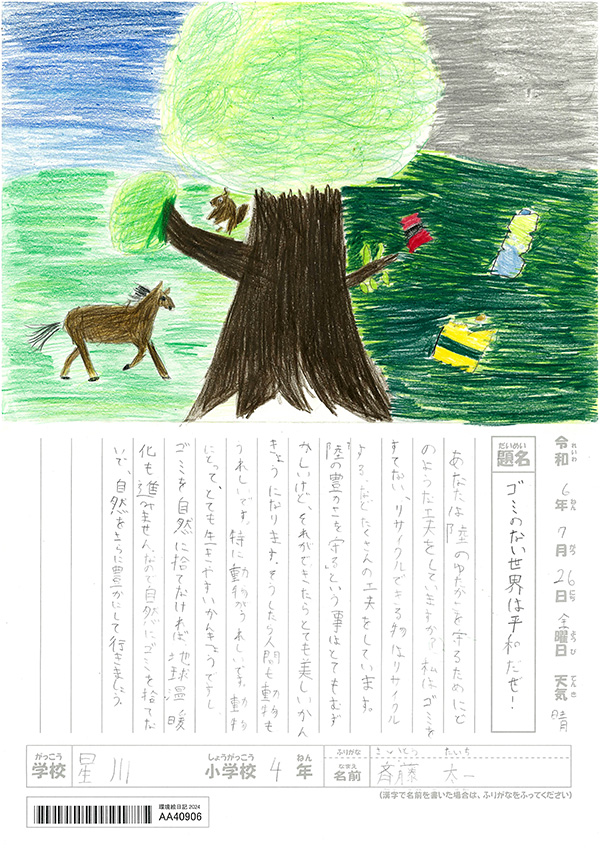 令和 6年 7月 26日 金曜日 天気 晴
れいわ ねん がつ にち ようび てんき
だいめい
題名 ゴミのない世界は平和だぜ!
あなたは陸のゆたかさを守るためにど
のような工夫をしていますか?私はゴミを
すてない、リサイクルできる物はリサイクル
する、などたくさんの工夫をしています。
陸の豊かさを守るという事はとてもむず
かしいけど、それができたらとても美しいかん
きょうになります。そうしたら人間も動物も
うれしいです。特に動物がうれしいです。動物
にとって、とても生きやすいかんきょうですし
ゴミを自然に捨てなければ地球温暖
化も進みません。なので自然にゴミを捨てな
いで、自然をさらに豊かにして行きましょう。
がっこう しょうがっこう ねん
学校 星川 小学校 4年
ふりがな さいとう たいち
なまえ
名前 斉藤 太一
(漢字で名前を書いた場合は、ふりがなをふってください)
環境絵日記 2024
AA40906